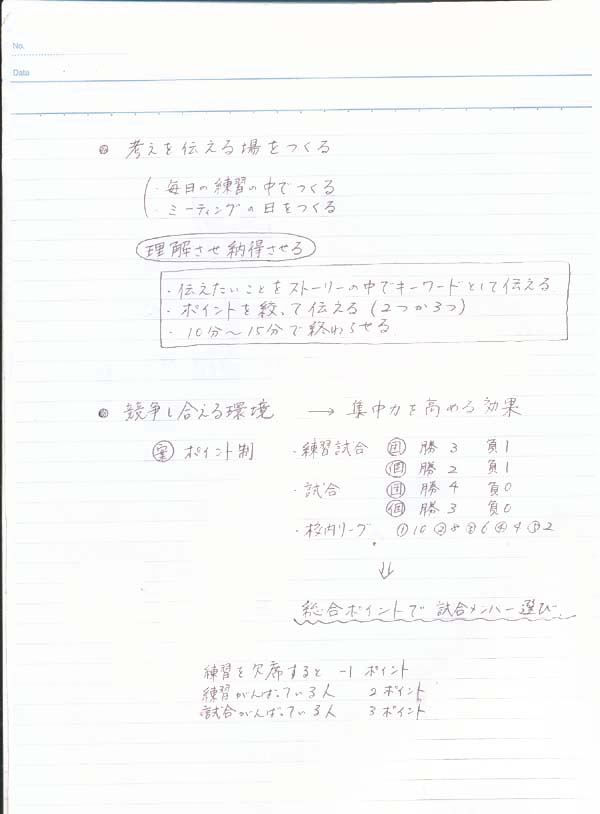 No.
Data
◎ 考えを伝える場をつくる
・毎日の練習の中でつくる
・ミーティングの日をつくる
理解させ納得させる
・伝えたいことをストーリーの中でキーワードとして伝える
・ポイントを絞って伝える(2つか3つ)
・10分〜15分で終わらせる
◎ 競争し合える環境 → 集中力を高める効果
案 ポイント制 ・練習試合 団 勝 3 負 1
個 勝 2 負 1
・試合 団 勝 4 負 0
個 勝 3 負 0
・校内リーグ ①10 ②8 ③6 ④4 ⑤2
⇓
総合ポイントで 試合メンバー選び
練習を欠席すると -1 ポイント
練習がんばっている人 2 ポイント
試合がんばっている人 3 ポイント